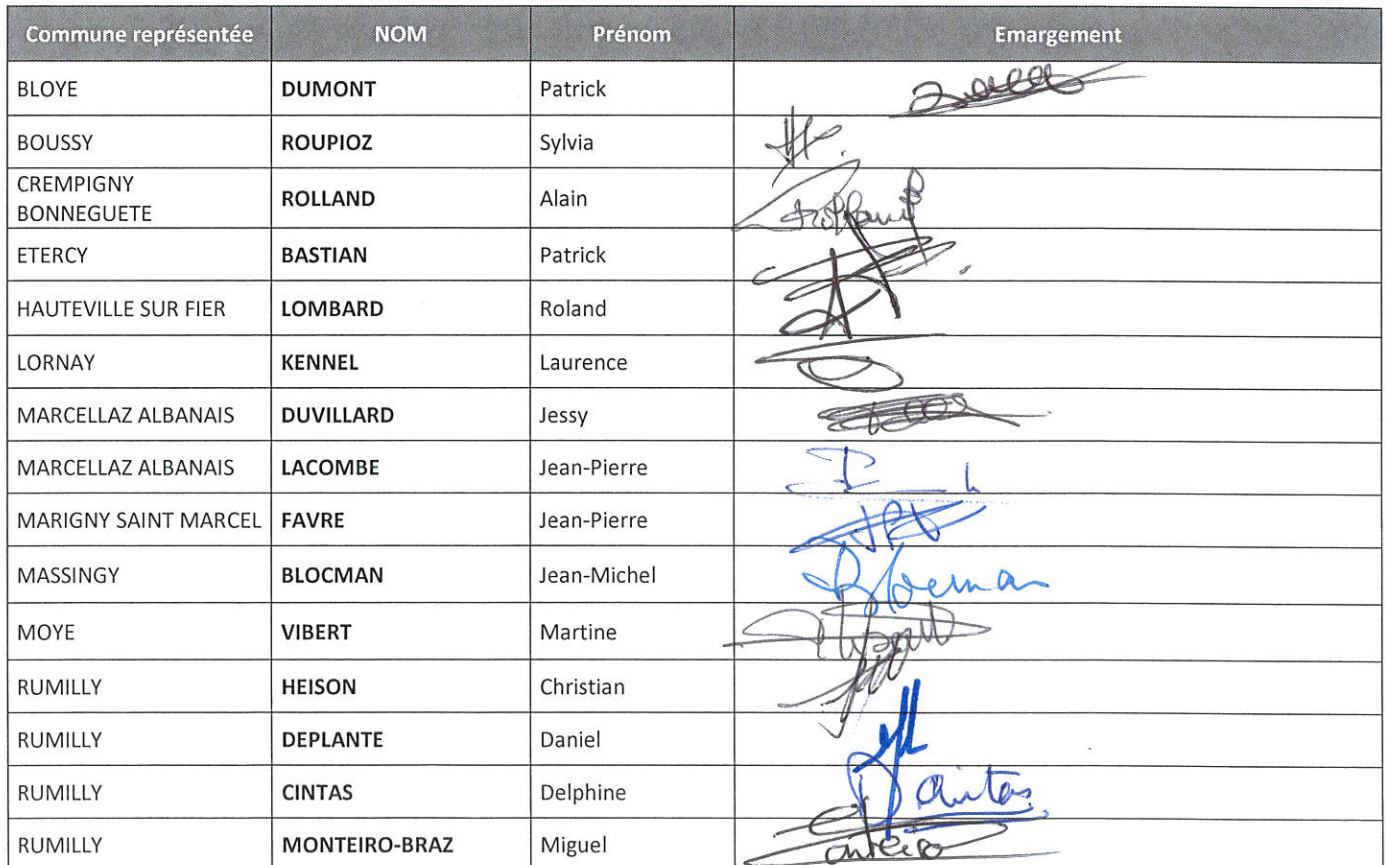 Commune représentée NOM Prénom Emargement
BLOYE DUMONT Patrick
BOUSSY ROUPIOZ Sylvia
CREMPIGNY
BONNEGUETE ROLLAND Alain
ETERCY BASTIAN Patrick
HAUTEVILLE SUR FIER LOMBARD Roland
LORNAY KENNEL Laurence
MARCELLAZ ALBANAIS DUVILLARD Jessy
MARCELLAZ ALBANAIS LACOMBE Jean-Pierre
MARIGNY SAINT MARCEL FAVRE Jean-Pierre
MASSINGY BLOCMAN Jean-Michel Blocman
MOYE VIBERT Martine
RUMILLY HEISON Christian
RUMILLY DEPLANTE Daniel
RUMILLY CINTAS Delphine Cintas
RUMILLY MONTEIRO-BRAZ Miguel